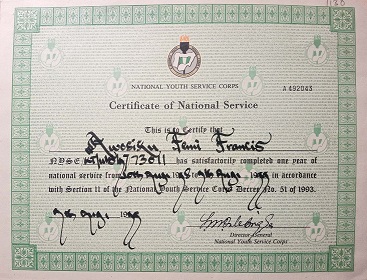 1130
NATIONAL YOUTH SERVICE CORPS A 492043
Certificate of National Service
This is to Certify that
Awosiku Femi Francis
NYSE has satisfactorily completed one year of
national service from in accordance
with Section 11 of the National Youth Service Corps Decree No. 51 of 1993.
Director-General
National Youth Service Corps